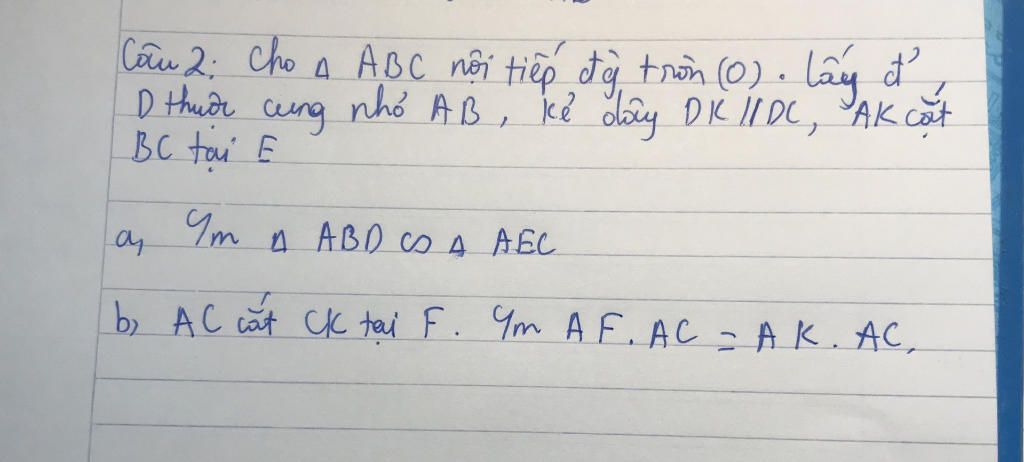 Câu 2: Cho Δ ABC nội tiếp đg tròn (O). Lấy đ'
D thuộc cung nhỏ AB, kẻ dây DK // DC, AK cắt
BC tại E
a, Cm Δ ABD ∽ Δ AEC
b, AC cắt CK tại F. Cm AF. AC = AK. AC,